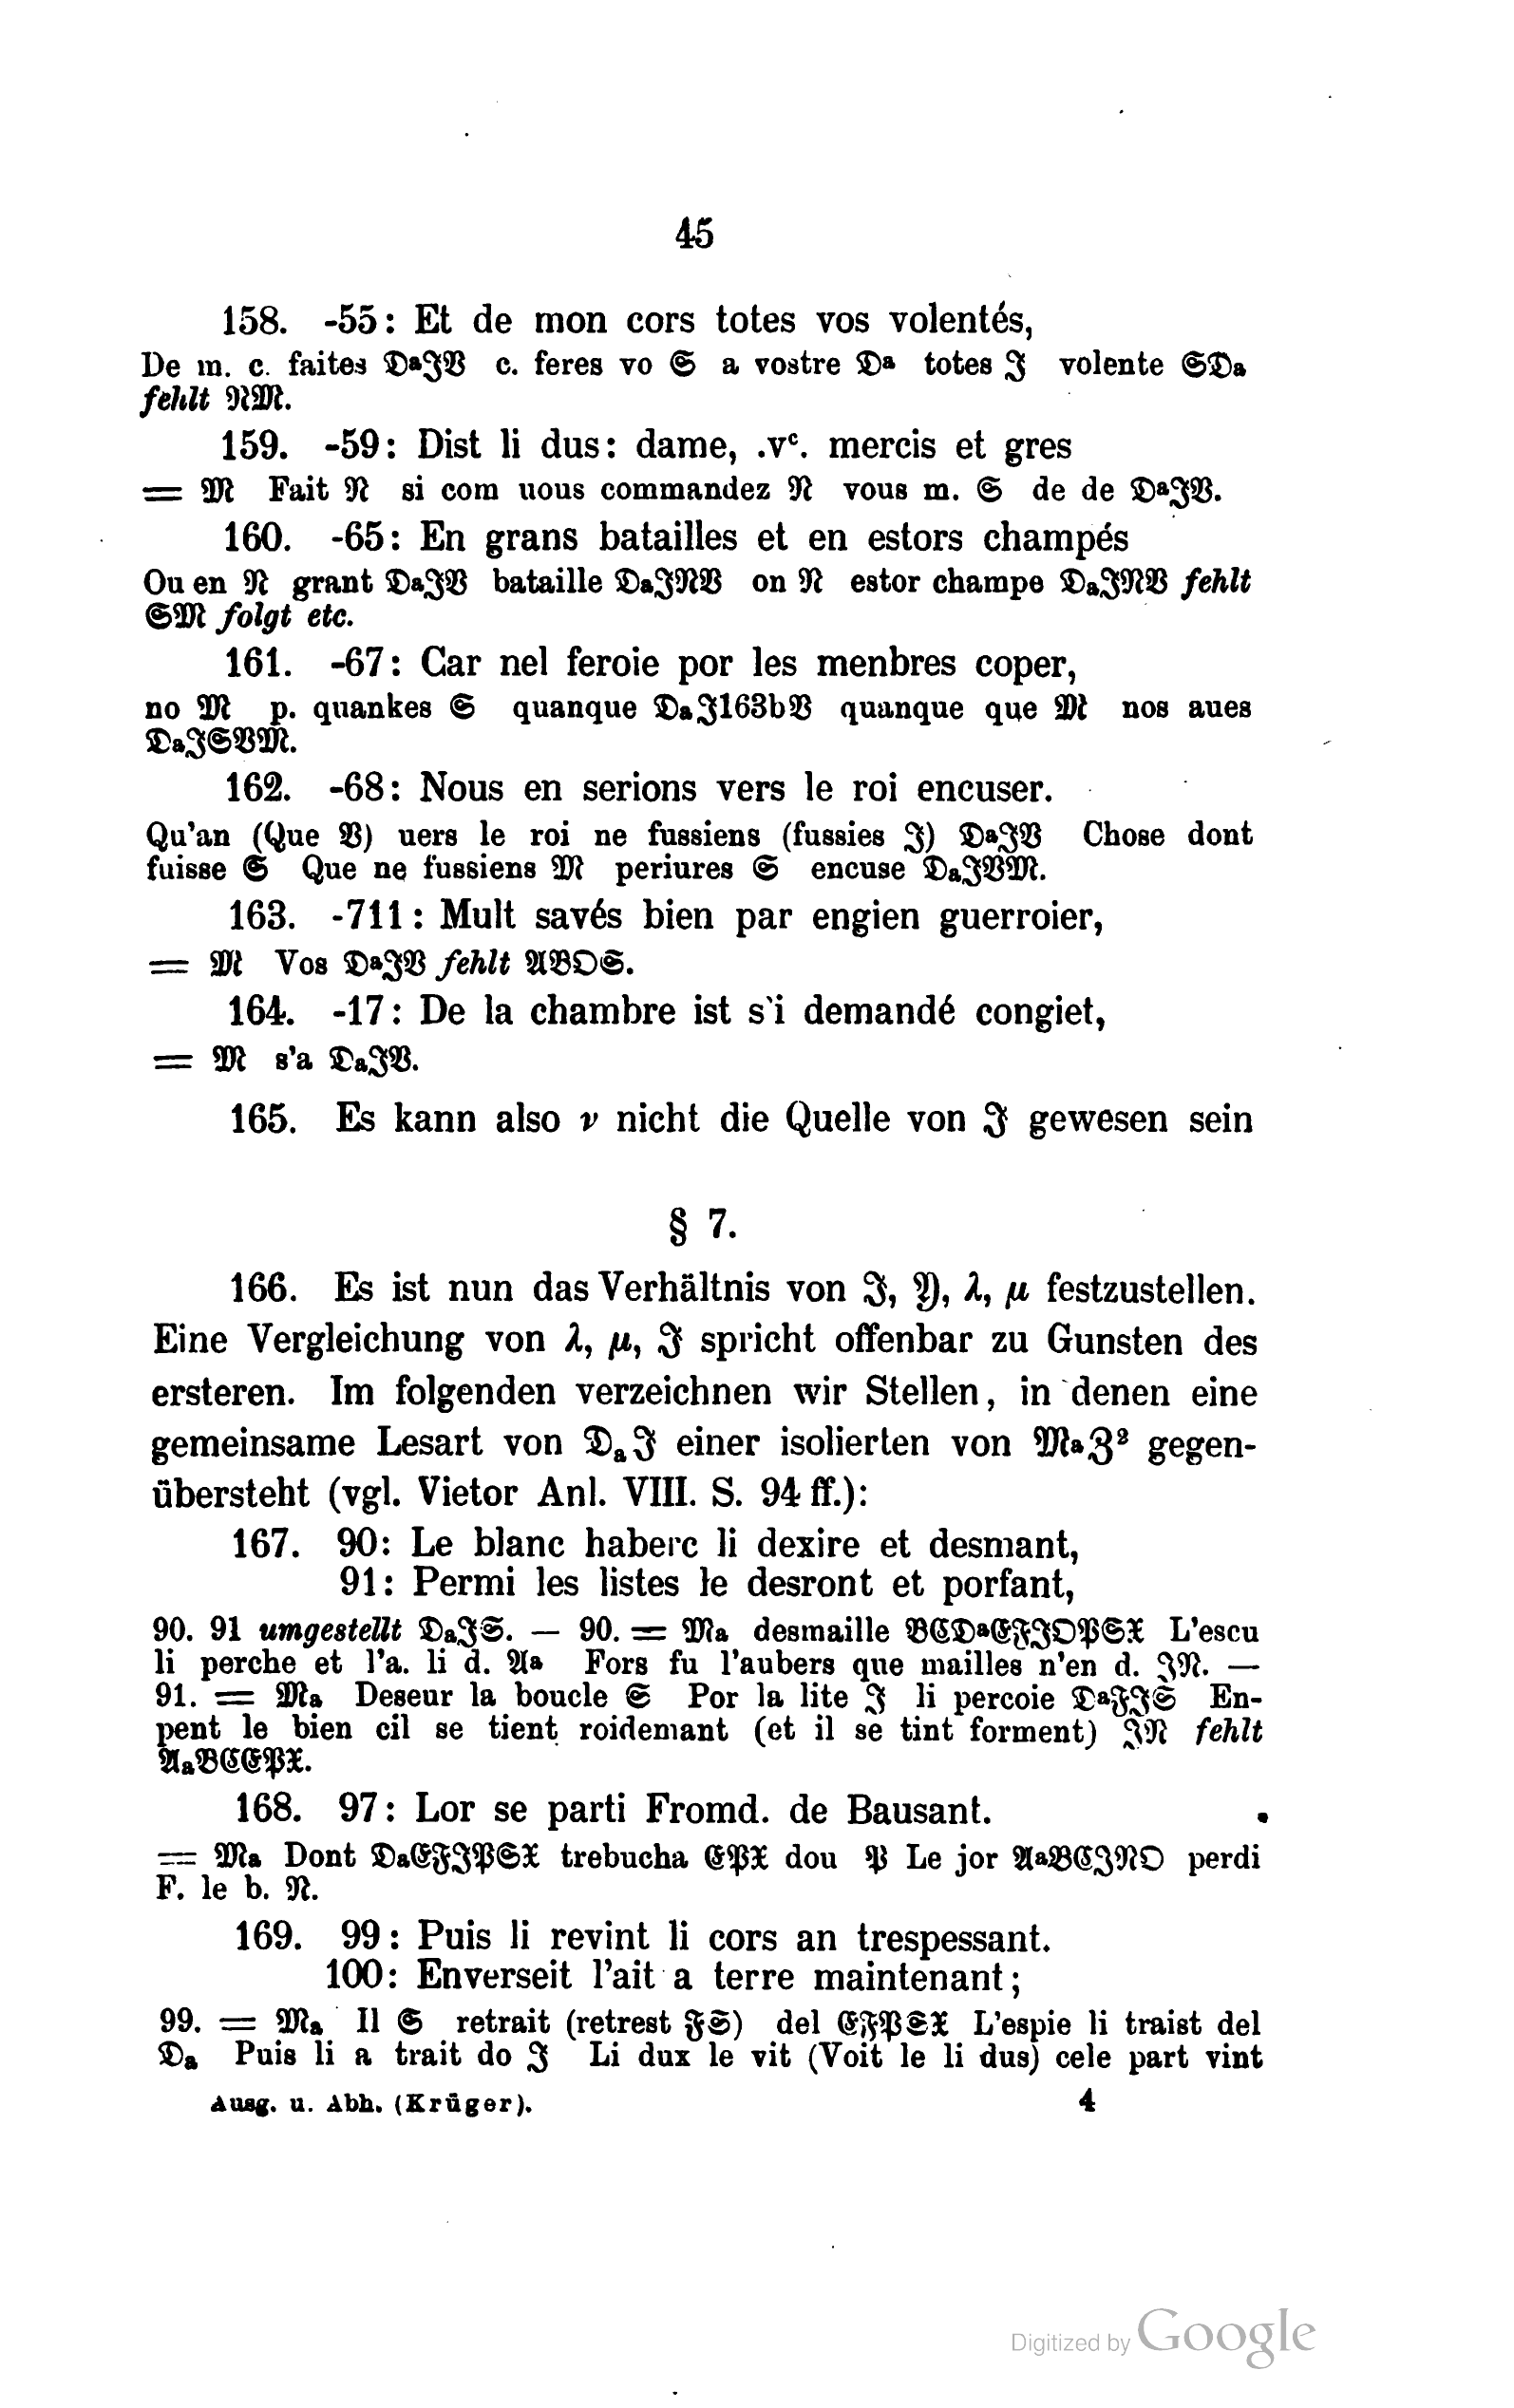 45
158. -55: Et de mon cors totes vos volentés,
De m. c. faites 𝔇ᵃ𝔍𝔙 c. feres vo 𝔖 a vostre 𝔇ᵃ totes 𝔍 volente 𝔖𝔇ₐ
fehlt 𝔑𝔐.
159. -59: Dist li dus: dame, .vᶜ. mercis et gres
= 𝔐 Fait 𝔑 si com uous commandez 𝔑 vous m. 𝔖 de de 𝔇ᵃ𝔍𝔙.
160. -65: En grans batailles et en estors champés
Ou en 𝔑 grant 𝔇ₐ𝔍𝔙 bataille 𝔇ₐ𝔍𝔑𝔙 on 𝔑 estor champe 𝔇ₐ𝔍𝔑𝔙 fehlt
𝔖𝔐 folgt etc.
161. -67: Car nel feroie por les menbres coper,
no 𝔐 p. quankes 𝔖 quanque 𝔇ₐ𝔍163b𝔙 quanque que 𝔐 nos aues
𝔇ₐ𝔍𝔖𝔙𝔐.
162. -68: Nous en serions vers le roi encuser.
Qu'an (Que 𝔙) uers le roi ne fussiens (fussies 𝔍) 𝔇ᵃ𝔍𝔙 Chose dont
fuisse 𝔖 Que ne fussiens 𝔐 periures 𝔖 encuse 𝔇ₐ𝔍𝔙𝔐.
163. -711: Mult savés bien par engien guerroier,
= 𝔐 Vos 𝔇ᵃ𝔍𝔙 fehlt 𝔄𝔅𝔒𝔖.
164. -17: De la chambre ist s'i demandé congiet,
= 𝔐 s'a 𝔇ₐ𝔍𝔙.
165. Es kann also ν nicht die Quelle von 𝔍 gewesen sein
§ 7.
166. Es ist nun das Verhältnis von 𝔍, 𝔜, λ, μ festzustellen.
Eine Vergleichung von λ, μ, 𝔍 spricht offenbar zu Gunsten des
ersteren. Im folgenden verzeichnen wir Stellen, in denen eine
gemeinsame Lesart von 𝔇ₐ𝔍 einer isolierten von 𝔐ₐℨ² gegen-
übersteht (vgl. Vietor Anl. VIII. S. 94 ff.):
167. 90: Le blanc haberc li dexire et desmant,
91: Permi les listes le desront et porfant,
90. 91 umgestellt 𝔇ₐ𝔍𝔖. — 90. = 𝔐ₐ desmaille 𝔅ℭ𝔇ᵃ𝔈𝔉𝔍𝔒𝔓𝔖𝔛 L'escu
li perche et l'a. li d. 𝔄ᵃ Fors fu l'aubers que mailles n'en d. ℨ𝔑. —
91. = 𝔐ₐ Deseur la boucle 𝔖 Por la lite 𝔍 li percoie 𝔇ᵃ𝔉𝔍𝔖 En-
pent le bien cil se tient roidemant (et il se tint forment) ℨ𝔑 fehlt
𝔄ₐ𝔅ℭ𝔈𝔓𝔛.
168. 97: Lor se parti Fromd. de Bausant.
= 𝔐ₐ Dont 𝔇ₐ𝔈𝔉𝔍𝔓𝔖𝔛 trebucha 𝔈𝔓𝔛 dou 𝔓 Le jor 𝔄ᵃ𝔅ℭℨ𝔑𝔒 perdi
F. le b. 𝔑.
169. 99: Puis li revint li cors an trespessant.
100: Enverseit l'ait a terre maintenant;
99. = 𝔐ₐ Il 𝔖 retrait (retrest 𝔉𝔖) del 𝔈𝔉𝔓𝔖𝔛 L'espie li traist del
𝔇ₐ Puis li a trait do 𝔍 Li dux le vit (Voit le li dus) cele part vint
Ausg. u. Abh. (Krüger). 4
Digitized by Google